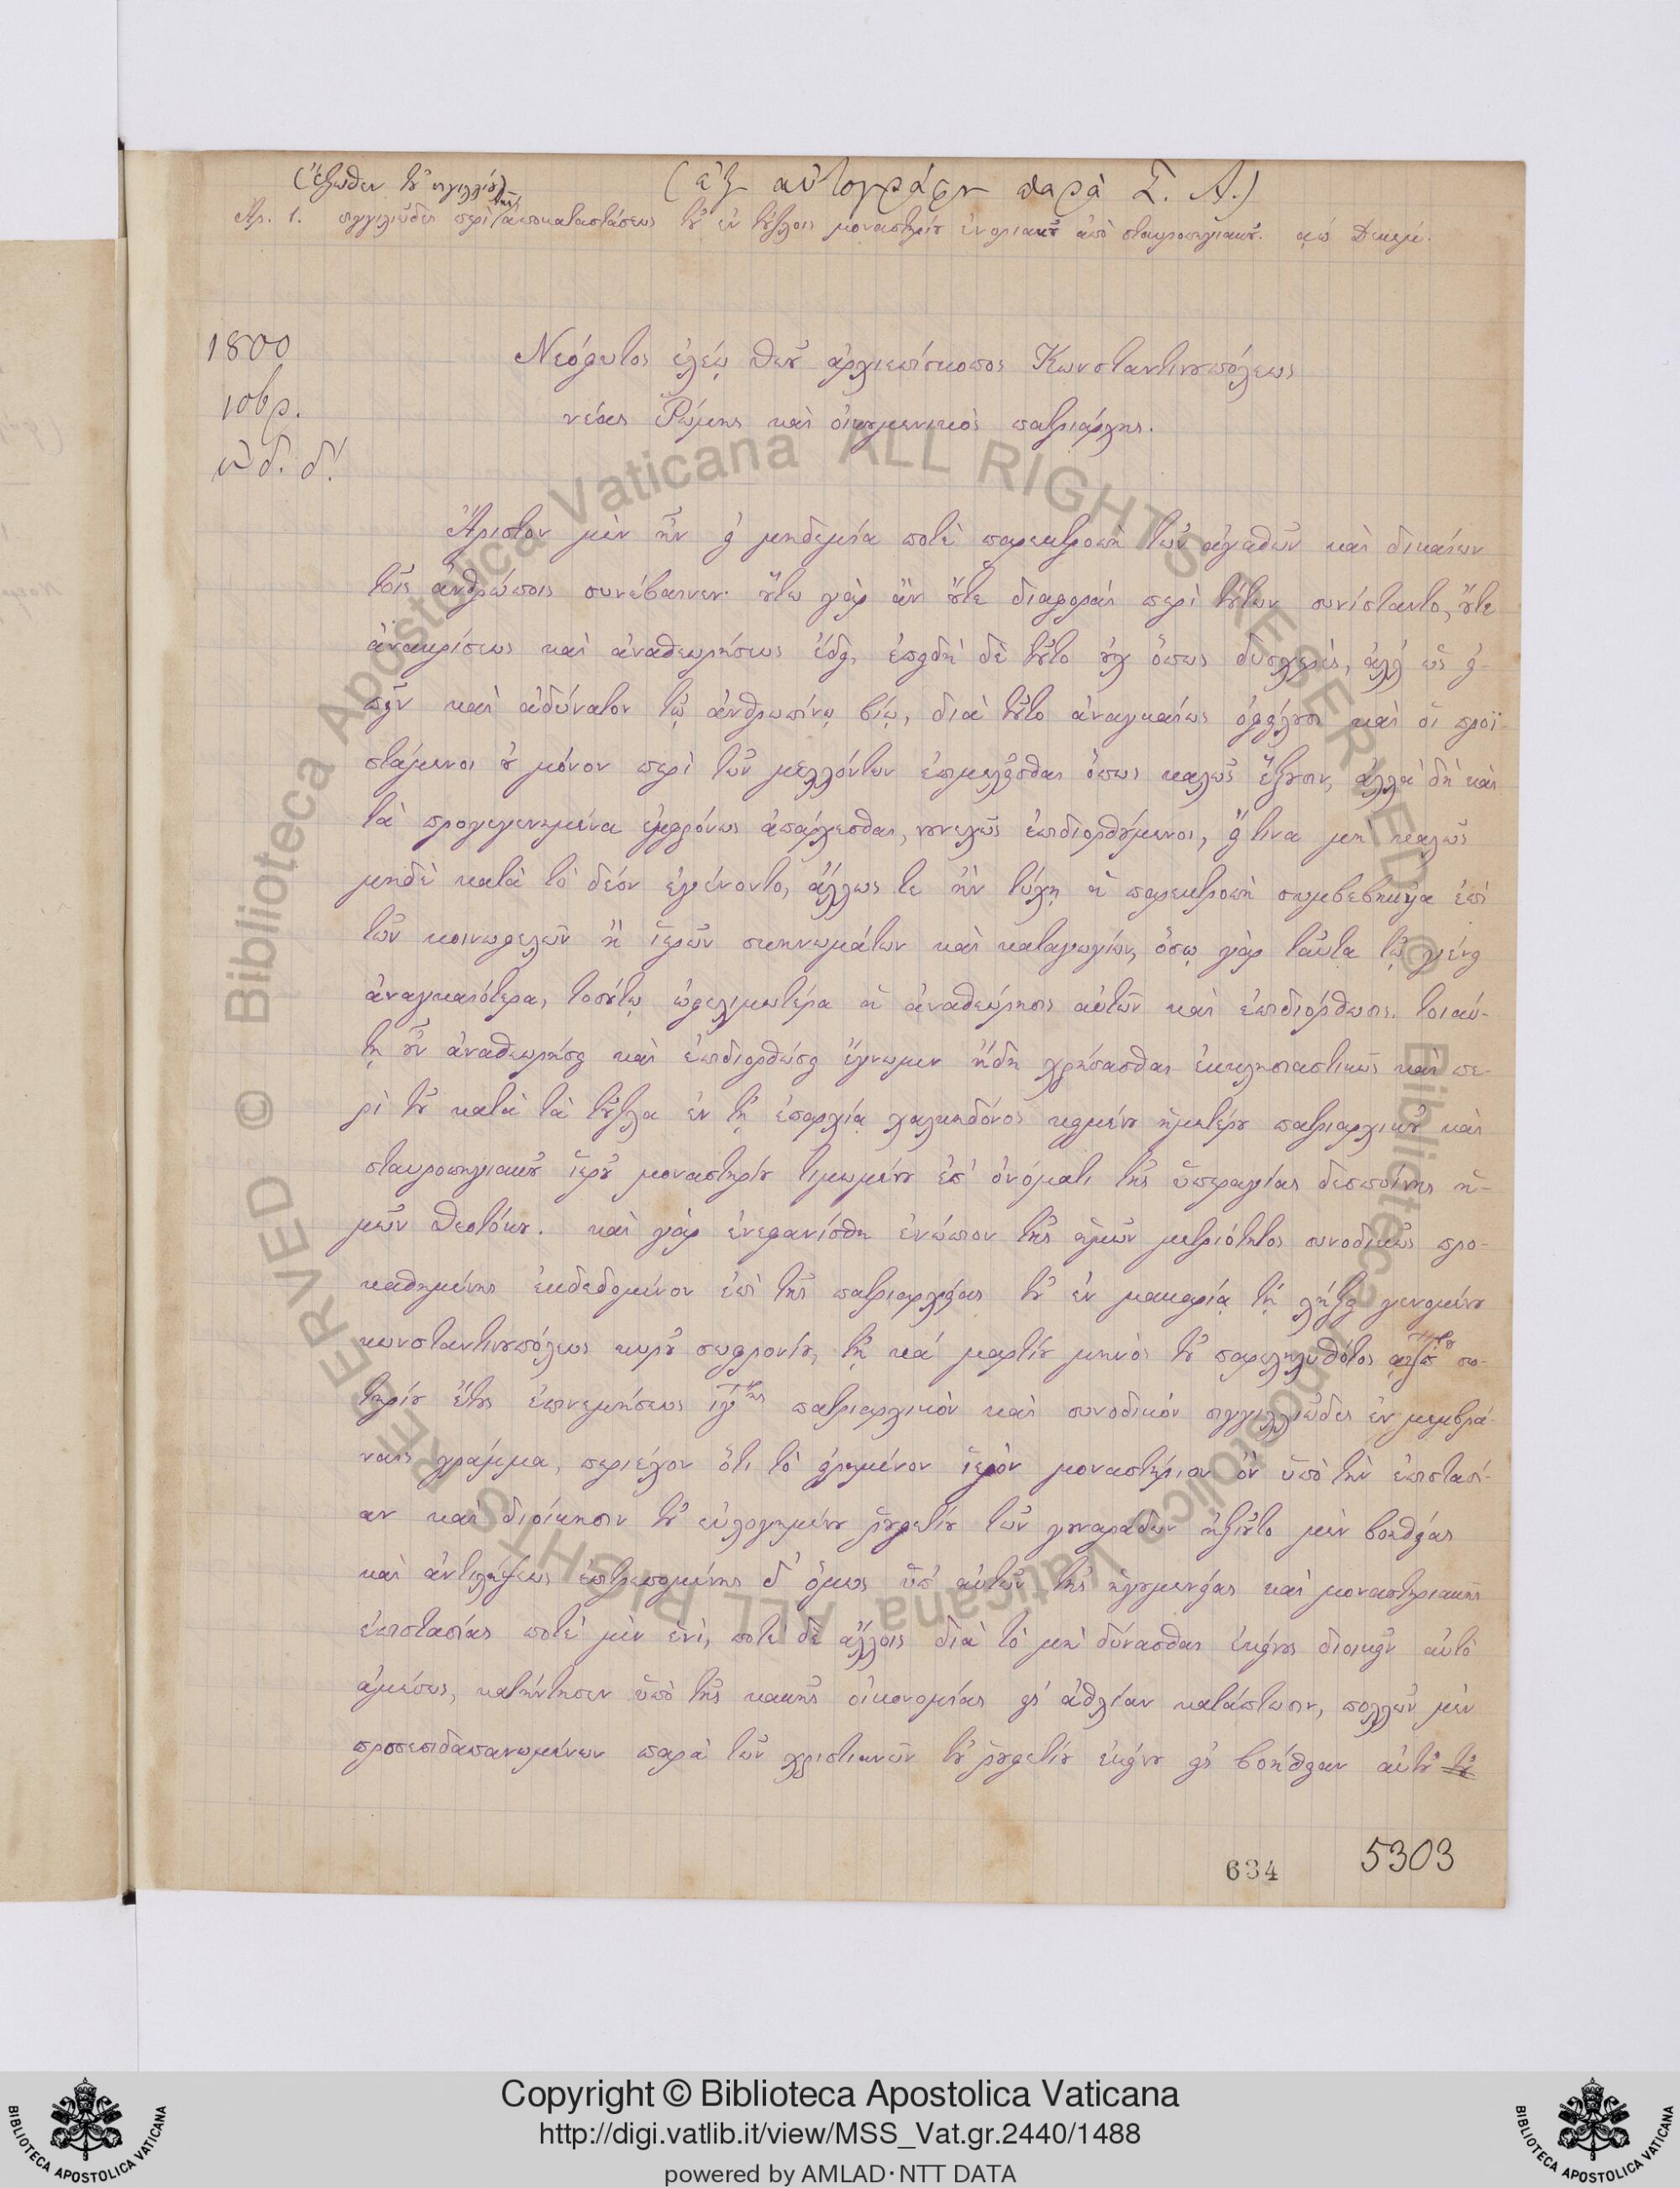 (ἔξωθεν τοῦ σιγιλλίου)
(ἐξ αὐτογράφου παρὰ Σ. Α.)
Ἀρ. 1. σιγγιλιῶδες περὶ τῆς ἀποκαταστάσεως τοῦ ἐν τούζλοις μοναστηρίου ἐνοριακοῦ ἀπὸ σταυροπηγιακοῦ. αω Δεκεμ.
1800
10βρ.
ἰνδ. δ!
Νεόφυτος ἐλέῳ θεοῦ ἀρχιεπίσκοπος Κωνσταντινουπόλεως
νέας Ῥώμης καὶ οἰκουμενικὸς πατριάρχης.
Ἄριστον μὲν ἦν εἰ μηδεμία ποτὲ παρεκτροπὴ τῶν ἀγαθῶν καὶ δικαίων
τοῖς ἀνθρώποις συνέβαινεν· οὕτω γὰρ ἂν οὔτε διαφοραὶ περὶ τούτων συνίσταντο, οὔτε
ἀνακρίσεως καὶ ἀναθεωρήσεως ἔδει, ἐπειδὴ δὲ τοῦτο οὐχ ὅπως δυσχερὲς, ἀλλ' ὡς εἰ-
πεῖν καὶ ἀδύνατον τῷ ἀνθρωπίνῳ βίῳ, διὰ τοῦτο ἀναγκαίως ὀφείλουσι καὶ οἱ προϊ-
στάμενοι οὐ μόνον περὶ τῶν μελλόντων ἐπιμελεῖσθαι ὅπως καλῶς ἕξουσιν, ἀλλὰ δὴ καὶ
τὰ προγεγενημένα ἐμφρόνως ἀπάρχεσθαι, νουνεχῶς ἐπιδιορθούμενοι, εἴ τινα μὴ καλῶς
μηδὲ κατὰ τὸ δέον ἐγένοντο, ἄλλως τε ἢν τύχῃ ἡ παρεκτροπὴ συμβεβηκυῖα ἐπὶ
τῶν κοινωφελῶν ἢ ἱερῶν σκηνωμάτων καὶ καταγωγίων, ὅσῳ γὰρ ταῦτα τῷ γένει
ἀναγκαιότερα, τοσούτῳ ὠφελιμωτέρα ἡ ἀναθεώρησις αὐτῶν καὶ ἐπιδιόρθωσις. τοιαύ-
τῃ οὖν ἀναθεωρήσει καὶ ἐπιδιορθώσει ἔγνωμεν ἤδη χρήσασθαι ἐκκλησιαστικῶς καὶ πε-
ρὶ τοῦ κατὰ τὰ τοῦζλα ἐν τῇ ἐπαρχίᾳ χαλκηδόνος κειμένου ἡμετέρου πατριαρχικοῦ καὶ
σταυροπηγιακοῦ ἱεροῦ μοναστηρίου τιμωμένου ἐπ' ὀνόματι τῆς ὑπεραγίας δεσποίνης ἡ-
μῶν θεοτόκου. καὶ γὰρ ἐνεφανίσθη ἐνώπιον τῆς ἡμῶν μετριότητος συνοδικῶς προ-
καθημένης ἐκδεδομένον ἐπὶ τῆς πατριαρχείας τοῦ ἐν μακαρίᾳ τῇ λήξει γενομένου
κωνσταντινουπόλεως κυροῦ σωφρονίου, τῇ κα΄ μαρτίου μηνὸς τοῦ παρεληλυθότος αψπ σω-
τηρίου ἔτους ἐπινεμήσεως ιγ΄ης πατριαρχικὸν καὶ συνοδικὸν σιγγιλλιῶδες ἐν μεμβρά-
ναις γράμμα, περιέχον ὅτι τὸ εἰρημένον ἱερὸν μοναστήριον ὂν ὑπὸ τὴν ἐπιστασί-
αν καὶ διοίκησιν τοῦ εὐλογημένου ῥουφετίου τῶν γουναράδων ἠξιοῦτο μὲν βοηθείας
καὶ ἀντιλήψεως ἐπιτρεπομένης δ' ὅμως ὑπ' αὐτῶν τῆς ἡγουμενείας καὶ μοναστηριακῆς
ἐπιστασίας ποτὲ μὲν ἑνὶ, ποτὲ δὲ ἄλλοις διὰ τὸ μὴ δύνασθαι ἐκείνους διοικεῖν αὐτὸ
ἀμέσως, κατήντησεν ὑπὸ τῆς κακῆς οἰκονομίας εἰς ἀθλίαν κατάπτωσιν, πολλῶν μὲν
προσεπιδαπανωμένων παρὰ τῶν χριστιανῶν τοῦ ῥουφετίου ἐκείνου εἰς βοήθειαν αὐτοῦ τοῦ
634
5303
Copyright © Biblioteca Apostolica Vaticana
http://digi.vatlib.it/view/MSS_Vat.gr.2440/1488
powered by AMLAD·NTT DATA